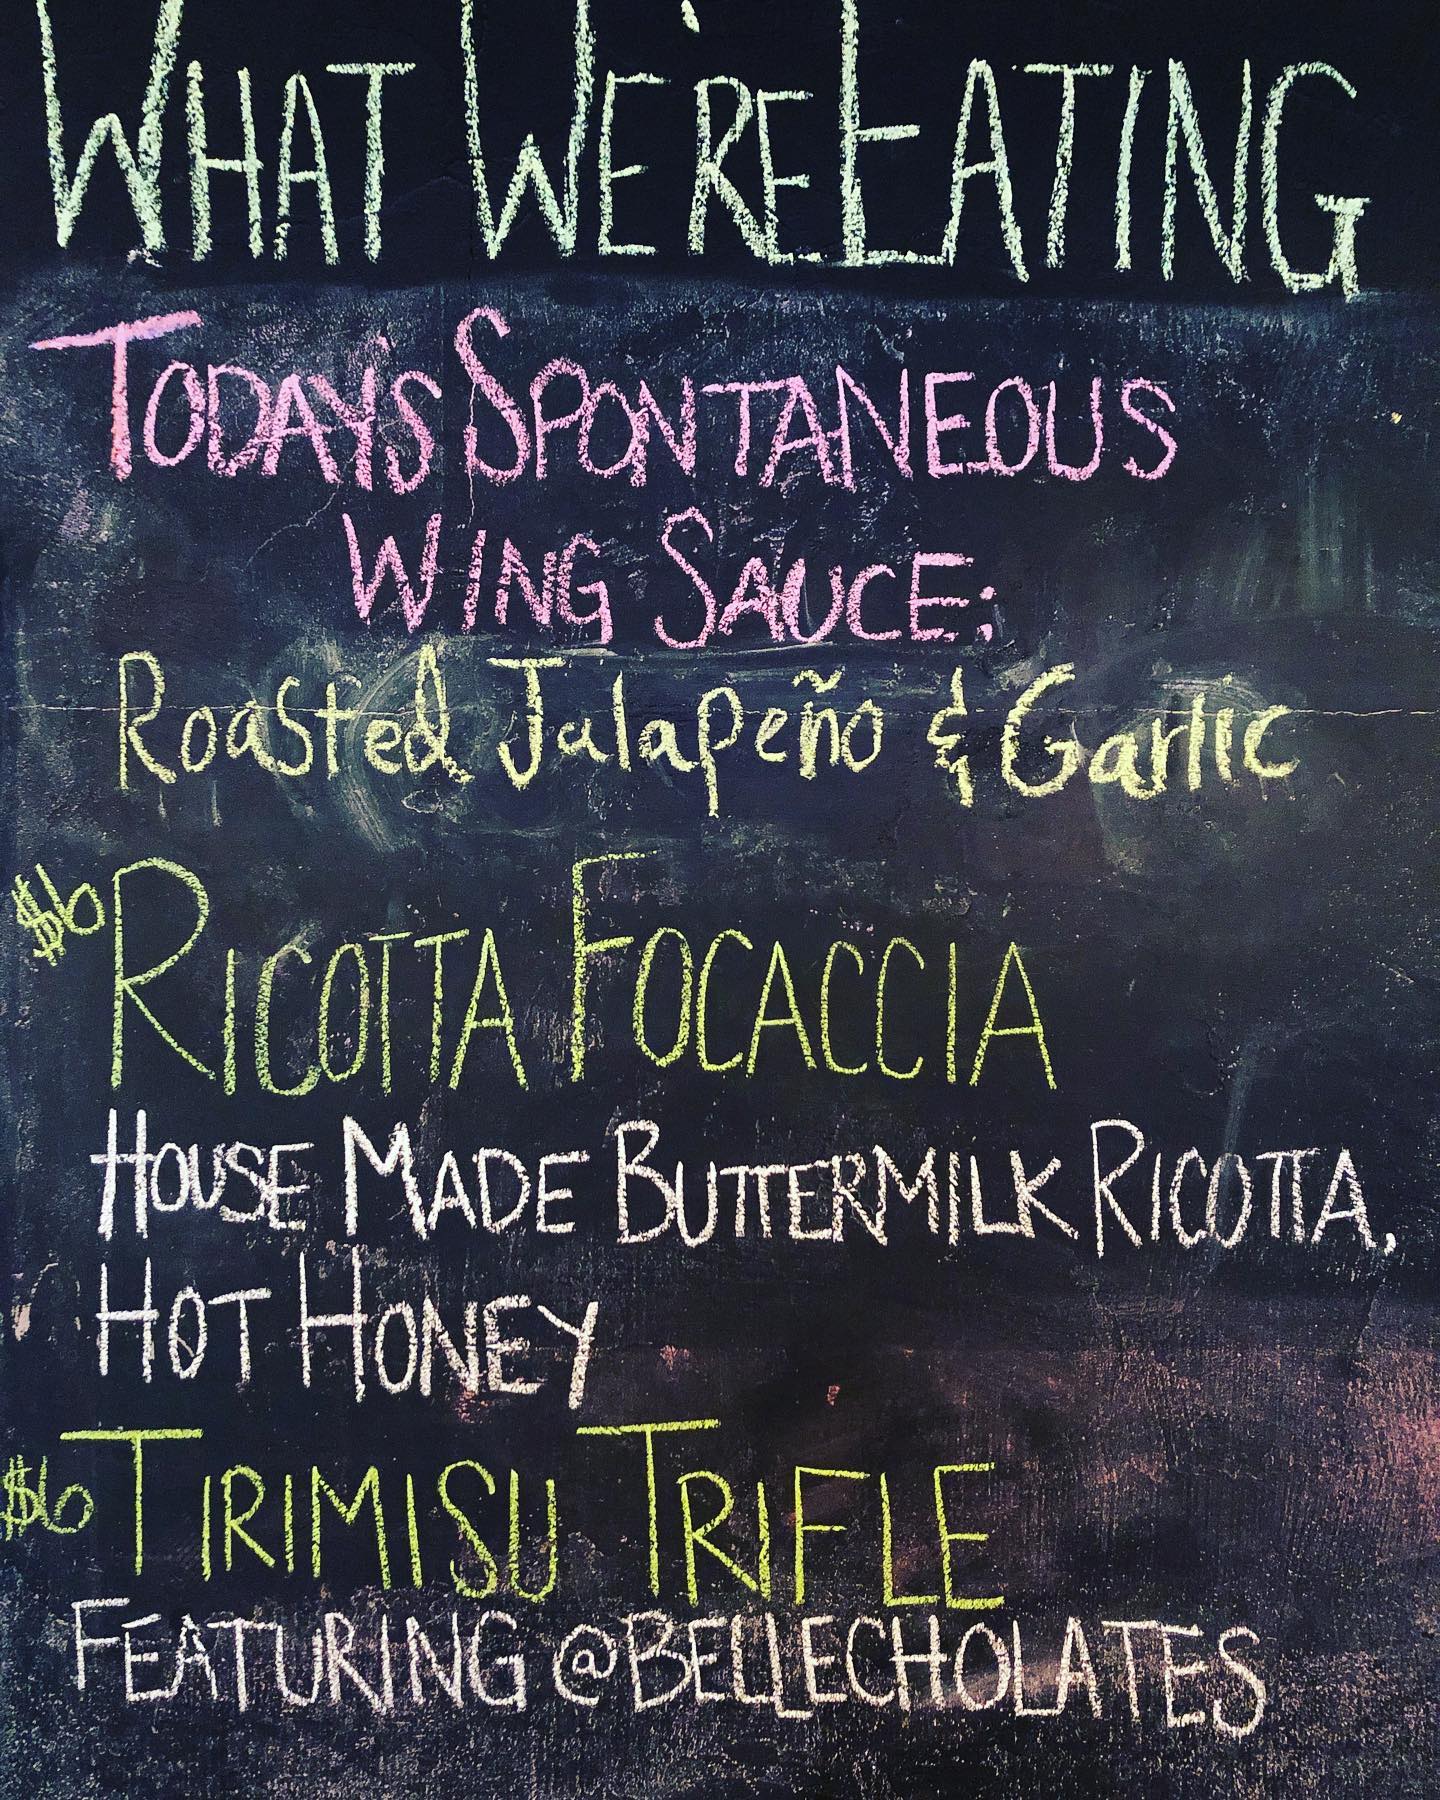 WHAT WE'RE EATING
TODAY'S SPONTANEOUS
WING SAUCE:
Roasted Jalapeño & Garlic
$6 RICOTTA FOCACCIA
HOUSE MADE BUTTERMILK RICOTTA,
HOT HONEY
$6 TIRIMISU TRIFLE
FEATURING @BELLECHOLATES